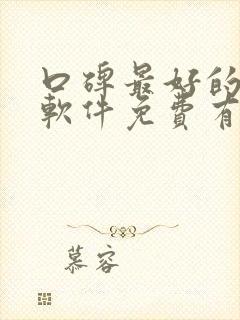 口碑最好的
軟件免費有
慕容